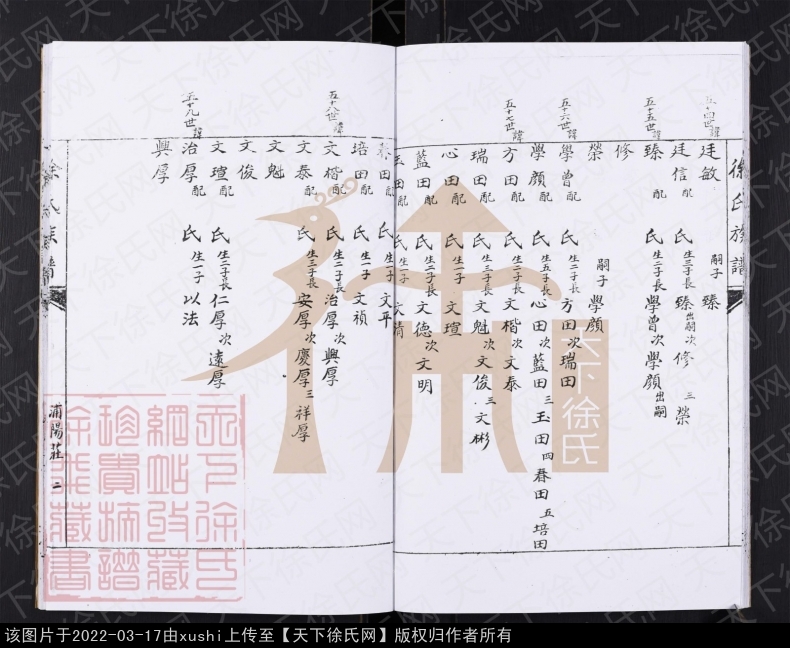 徐氏族譜
五十四世諱
廷敏 嗣子 臻
廷信配 氏生三子長臻出嗣次修三榮
五十五世諱
臻配 氏生二子長學曾次學顏出嗣
修
榮 嗣子 學顏
五十六世諱
學曾配 氏生二子長方田次瑞田
學顏配 氏生五子長心田次藍田三玉田四春田五培田
五十七世諱
方田配 氏生二子長文楷次文泰
瑞田配 氏生三子長文魁次文俊三文彬
心田配 氏生一子文瑄
藍田配 氏生二子長文德次文明
玉田配 氏生一子文清
春田配 氏生一子文平
培田配 氏生一子文禎
五十八世諱
文楷配 氏生二子長治厚次興厚
文泰配 氏生三子長安厚次慶厚三祥厚
文魁
文俊
文瑄配 氏生二子長仁厚次遠厚
五十九世諱
治厚配 氏生一子以法
興厚
徐氏族譜
浦陽莊 二
天下徐氏
该图片于2022-03-17由xushi上传至【天下徐氏网】版权归作者所有